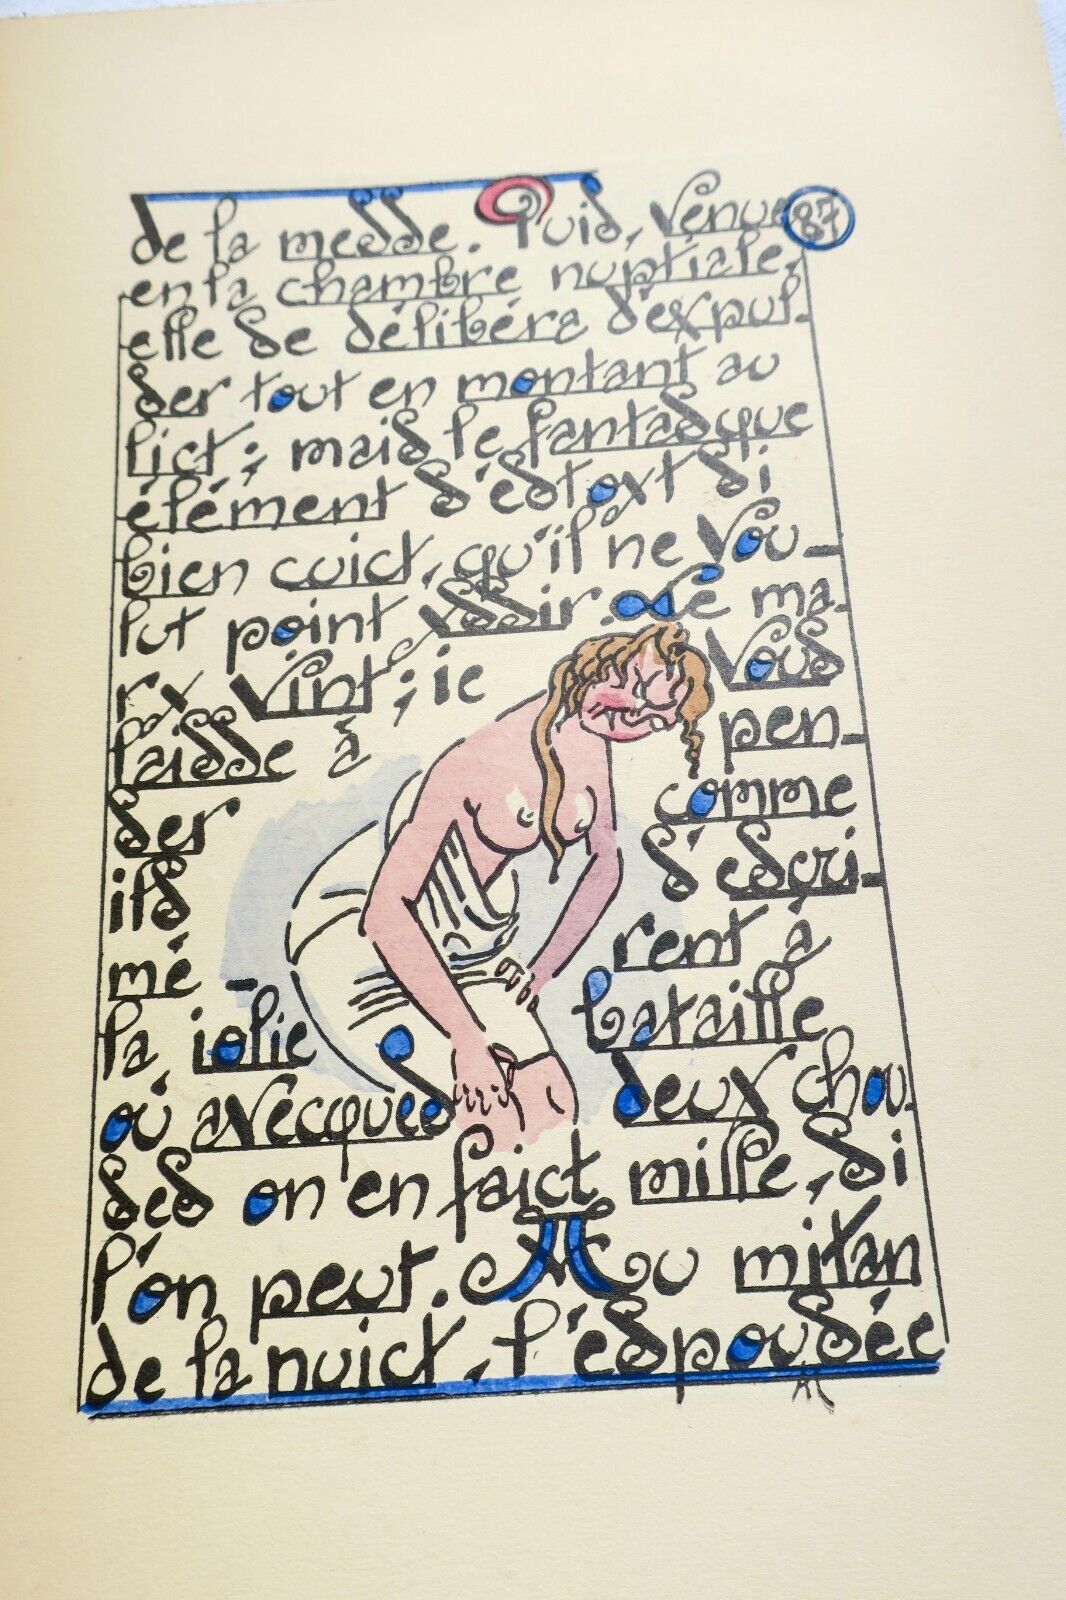 de la messe. Puis, venue 87
en la chambre nuptiale,
elle se délibéra d'expul-
ser tout en montant au
lict ; mais le fantasque
élément s'estoyt si
bien cuict, qu'il ne vou-
lut point yssir. Le ma-
ry vint ; ie vous
laisse à pen-
ser comme
ils s'escri-
mé - rent à
la iolie bataille
où avecques deux chou-
ses on en faict mille, si
l'on peut. Au mitan
de la nuict, l'espousée